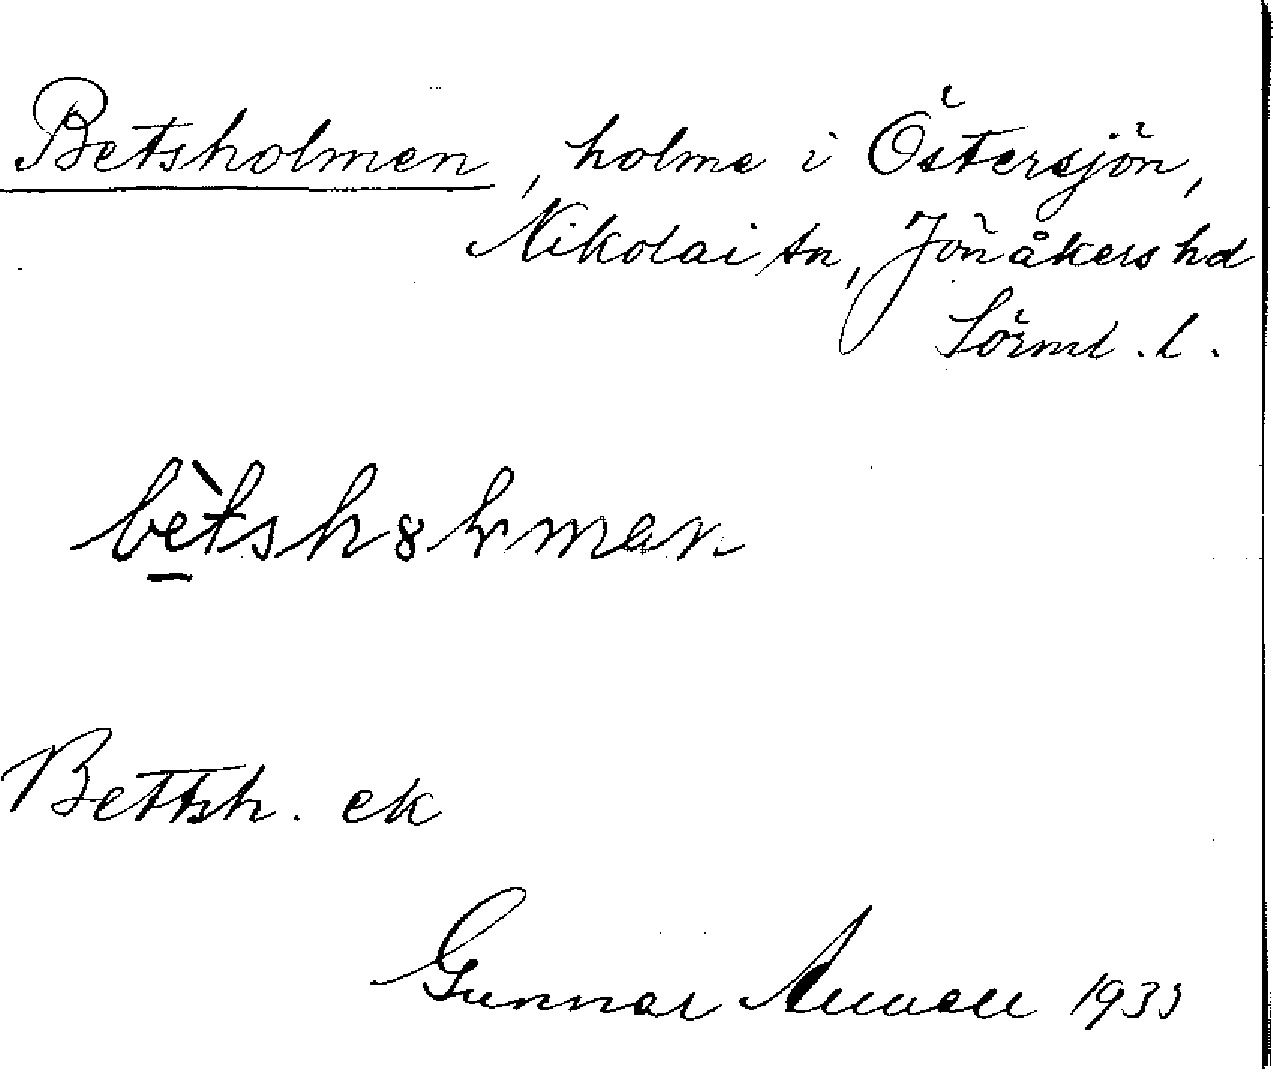 Betsholmen, holme i Östersjön,
Nikolai sn, Jönåkers hd
Sörml. l.
bètsh8lmen
Bettsh. ek
Gunnar 1933